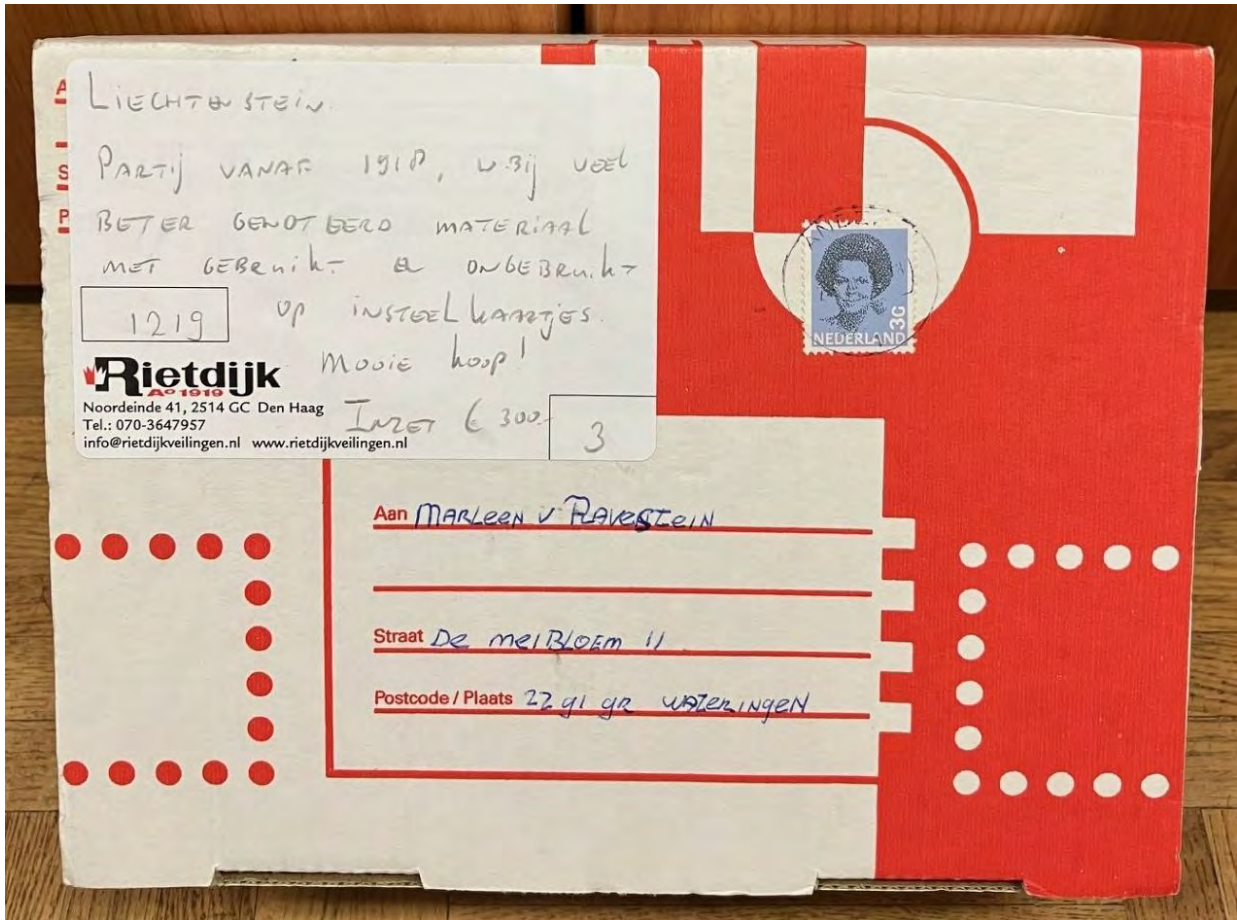 A
S
P
LIECHTENSTEIN.
PARTIJ VANAF 1918, W.BIJ VEEL
BETER GENOTEERD MATERIAAL
MET GEBRUIKT & ONGEBRUIKT
OP INSTEEKKAARTJES.
1219
MOOIE KOOP!
Rietdijk
Aº 1919
Noordeinde 41, 2514 GC Den Haag
Tel.: 070-3647957
info@rietdijkveilingen.nl www.rietdijkveilingen.nl
INZET € 300.-
3
NEDERLAND 3G
Aan MARLEEN V RAVESTEIN
Straat De meIBLOEM 11
Postcode / Plaats 2291 gr WATERINGEN